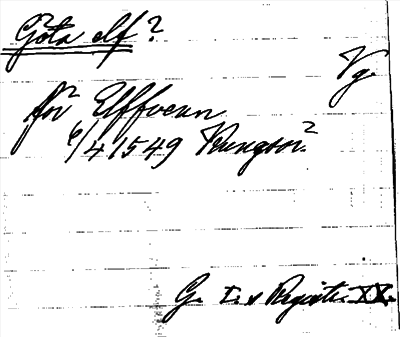 Göta elf?
Vg.
för Elffvenn
6/4 1549 Kungsör.
G. I.s Registr. XX.